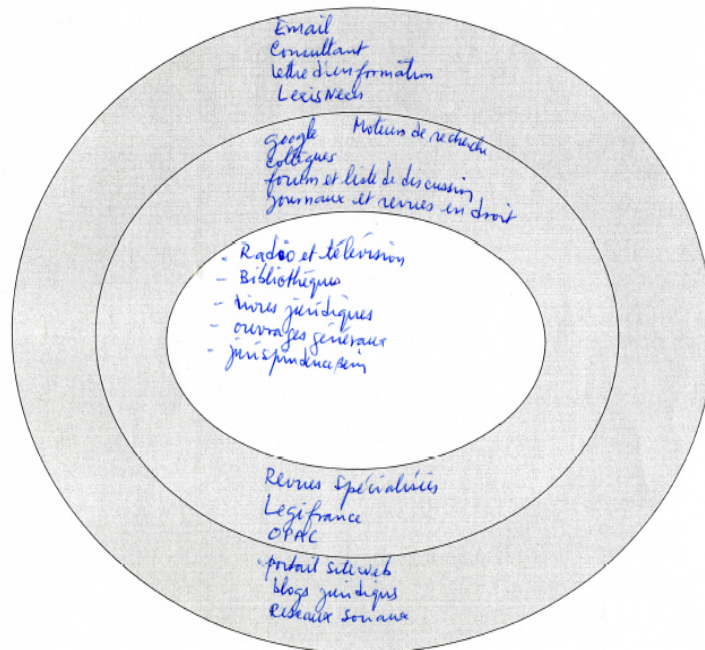 Email
Consultant
lettre d'information
LexisNexis
google Moteurs de recherche
collègues
forum et liste de discussion
journaux et revues en droit
- Radio et télévision
- Bibliothèques
- livres juridiques
- ouvrages généraux
- jurisprudence
Revues Spécialisées
Legifrance
OPAC
portail site web
blogs juridiques
Réseaux sociaux